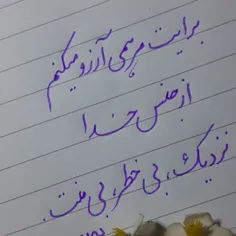 برایت مرهمی آرزو میکنم
از جنس خدا
نزدیک، بی خطر، بی منت.